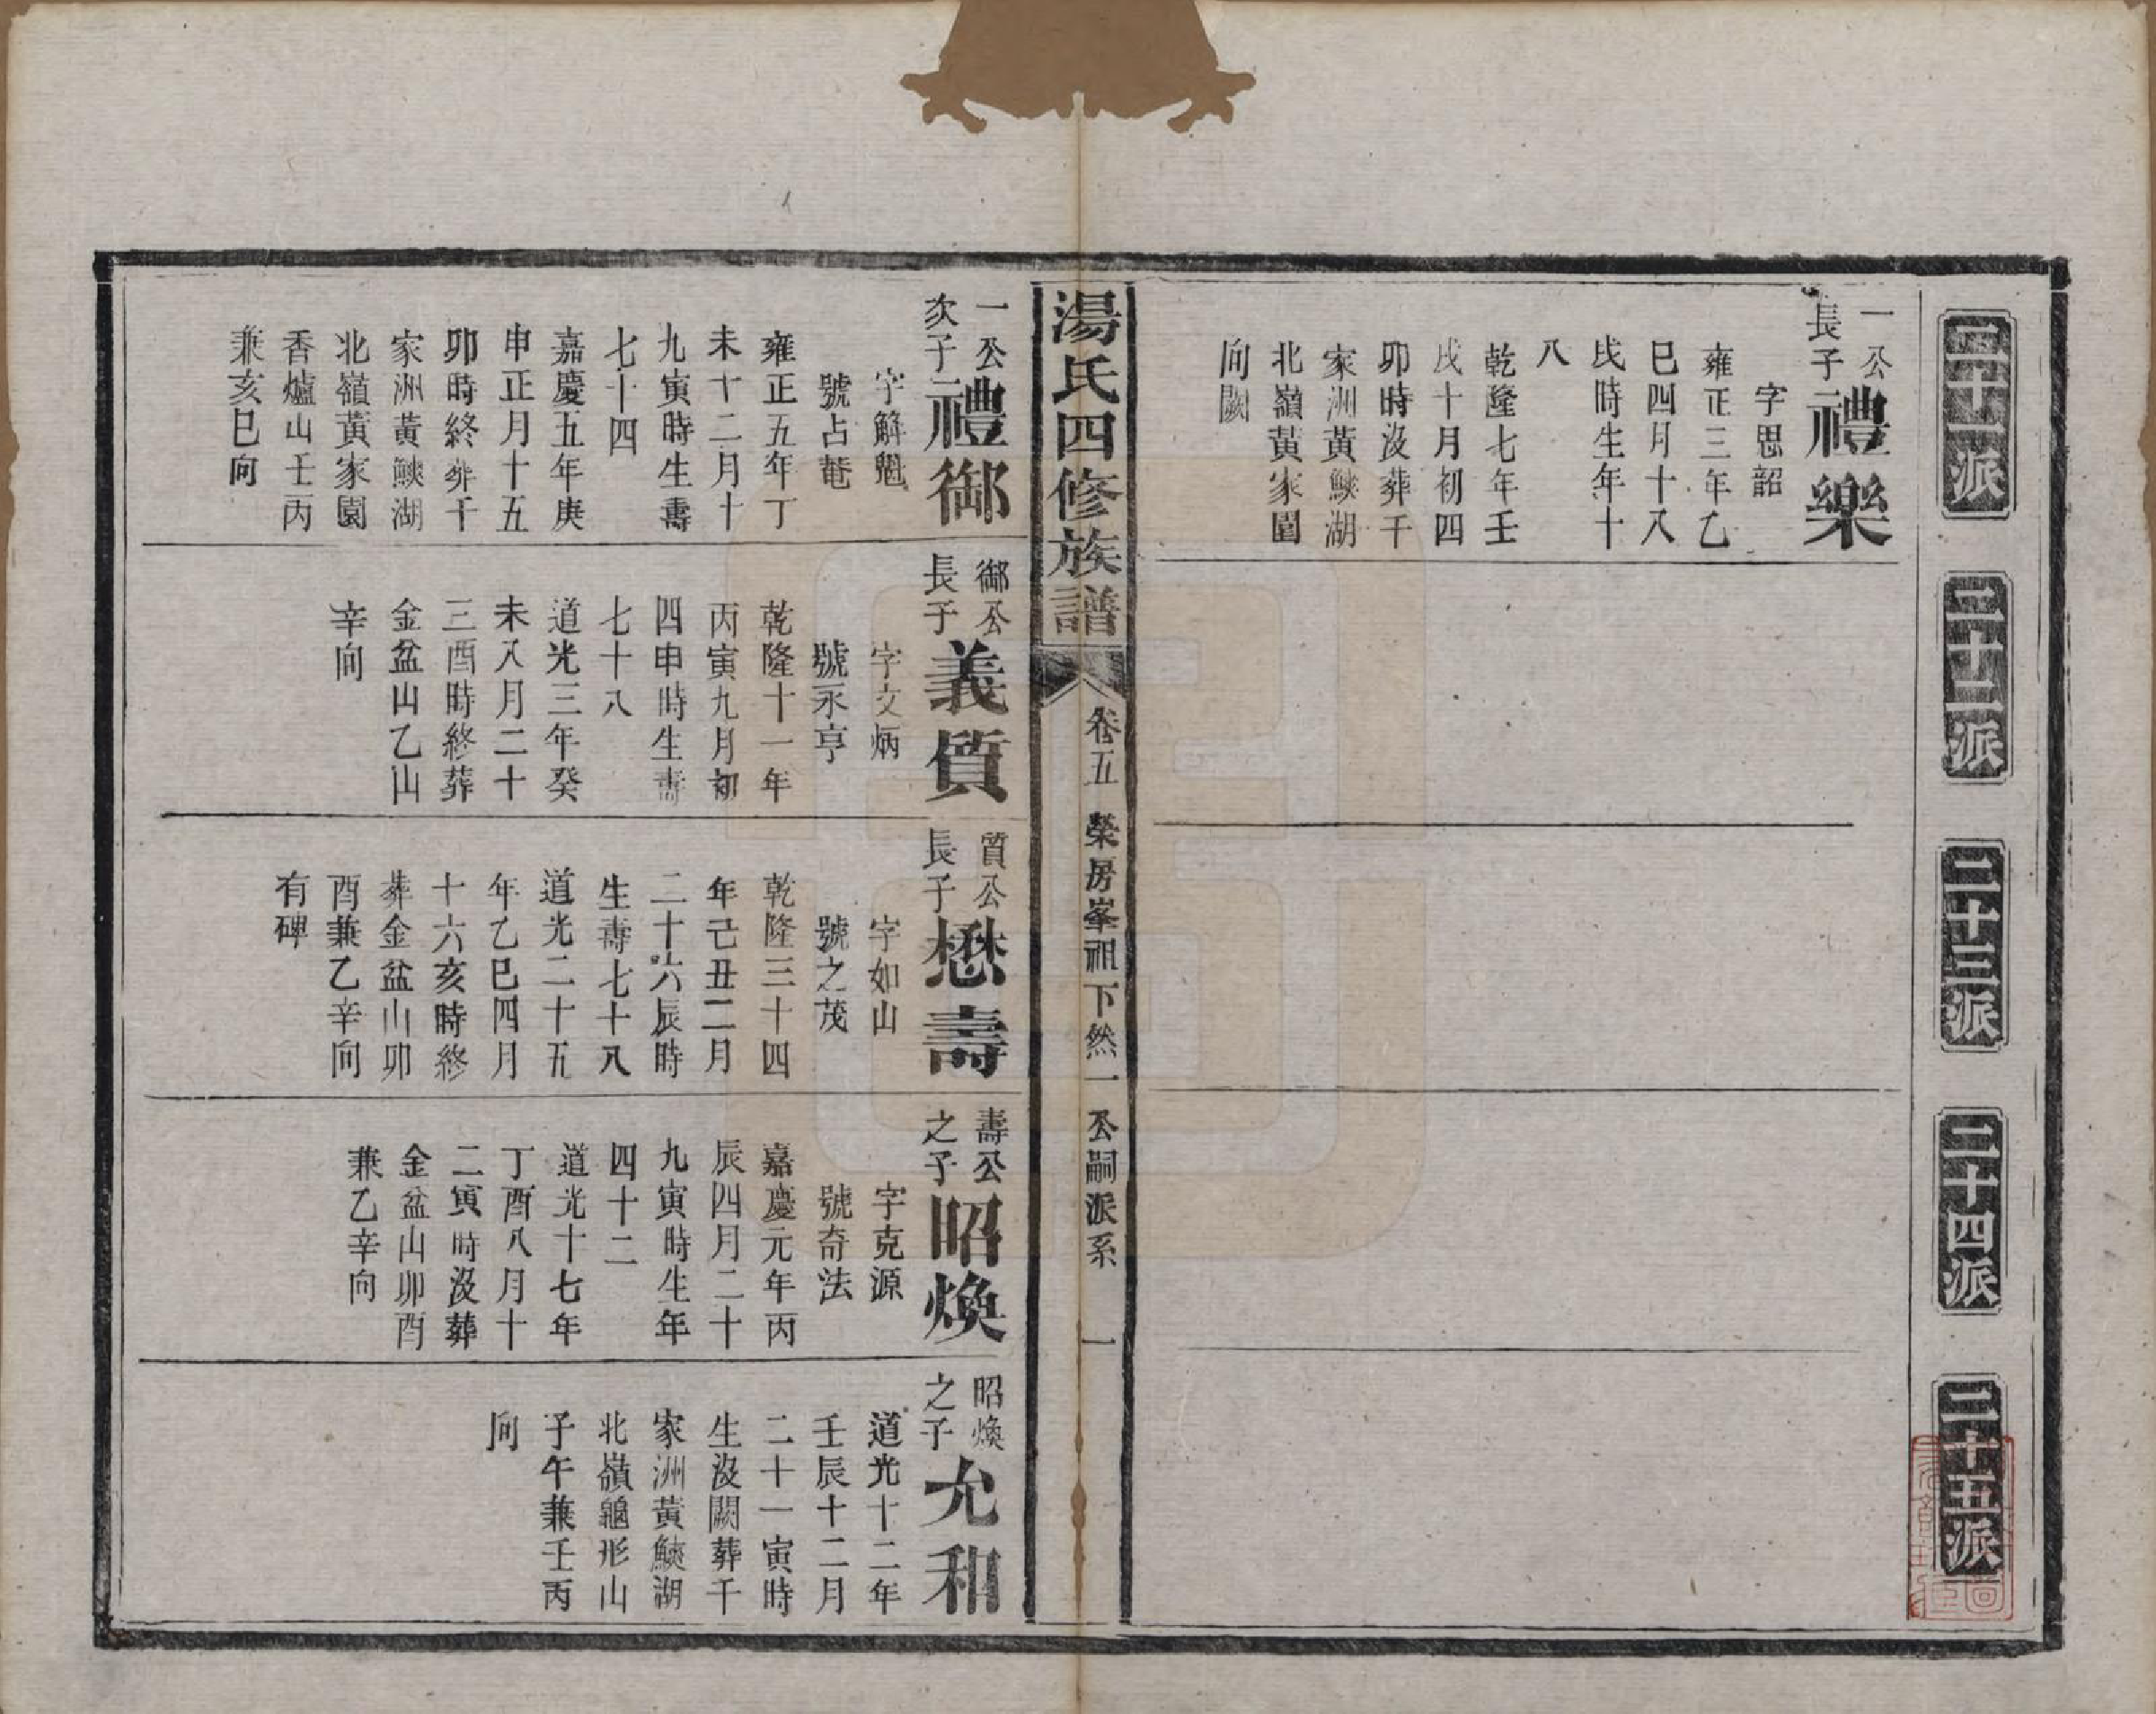 二十一派
二十二派
二十三派
二十四派
二十五派
一公
長子
禮樂
字思韶
雍正三年乙
巳四月十八
戌時生年十
八
乾隆七年壬
戌十月初四
卯時沒葬千
家洲黃鰊湖
北嶺黃家園
向闕
湯氏四修族譜
卷五
榮房峯祖下然一公嗣派系
一
一公
次子
禮御
字解魁
號占菴
雍正五年丁
未十二月十
九寅時生壽
七十四
嘉慶五年庚
申正月十五
卯時終葬千
家洲黃鰊湖
北嶺黃家園
香爐山壬丙
兼亥巳向
御公
長子
義質
字文炳
號永亨
乾隆十一年
丙寅九月初
四申時生壽
七十八
道光三年癸
未八月二十
三酉時終葬
金盆山乙山
辛向
質公
長子
懋壽
字如山
號之茂
乾隆三十四
年己丑二月
二十六辰時
生壽七十八
道光二十五
年乙巳四月
十六亥時終
葬金盆山卯
酉兼乙辛向
有碑
壽公
之子
昭煥
字克源
號奇法
嘉慶元年丙
辰四月二十
九寅時生年
四十二
道光十七年
丁酉八月十
二寅時沒葬
金盆山卯酉
兼乙辛向
昭煥
之子
允和
道光十二年
壬辰十二月
二十一寅時
生沒闕葬千
家洲黃鰊湖
北嶺龜形山
子午兼壬丙
向